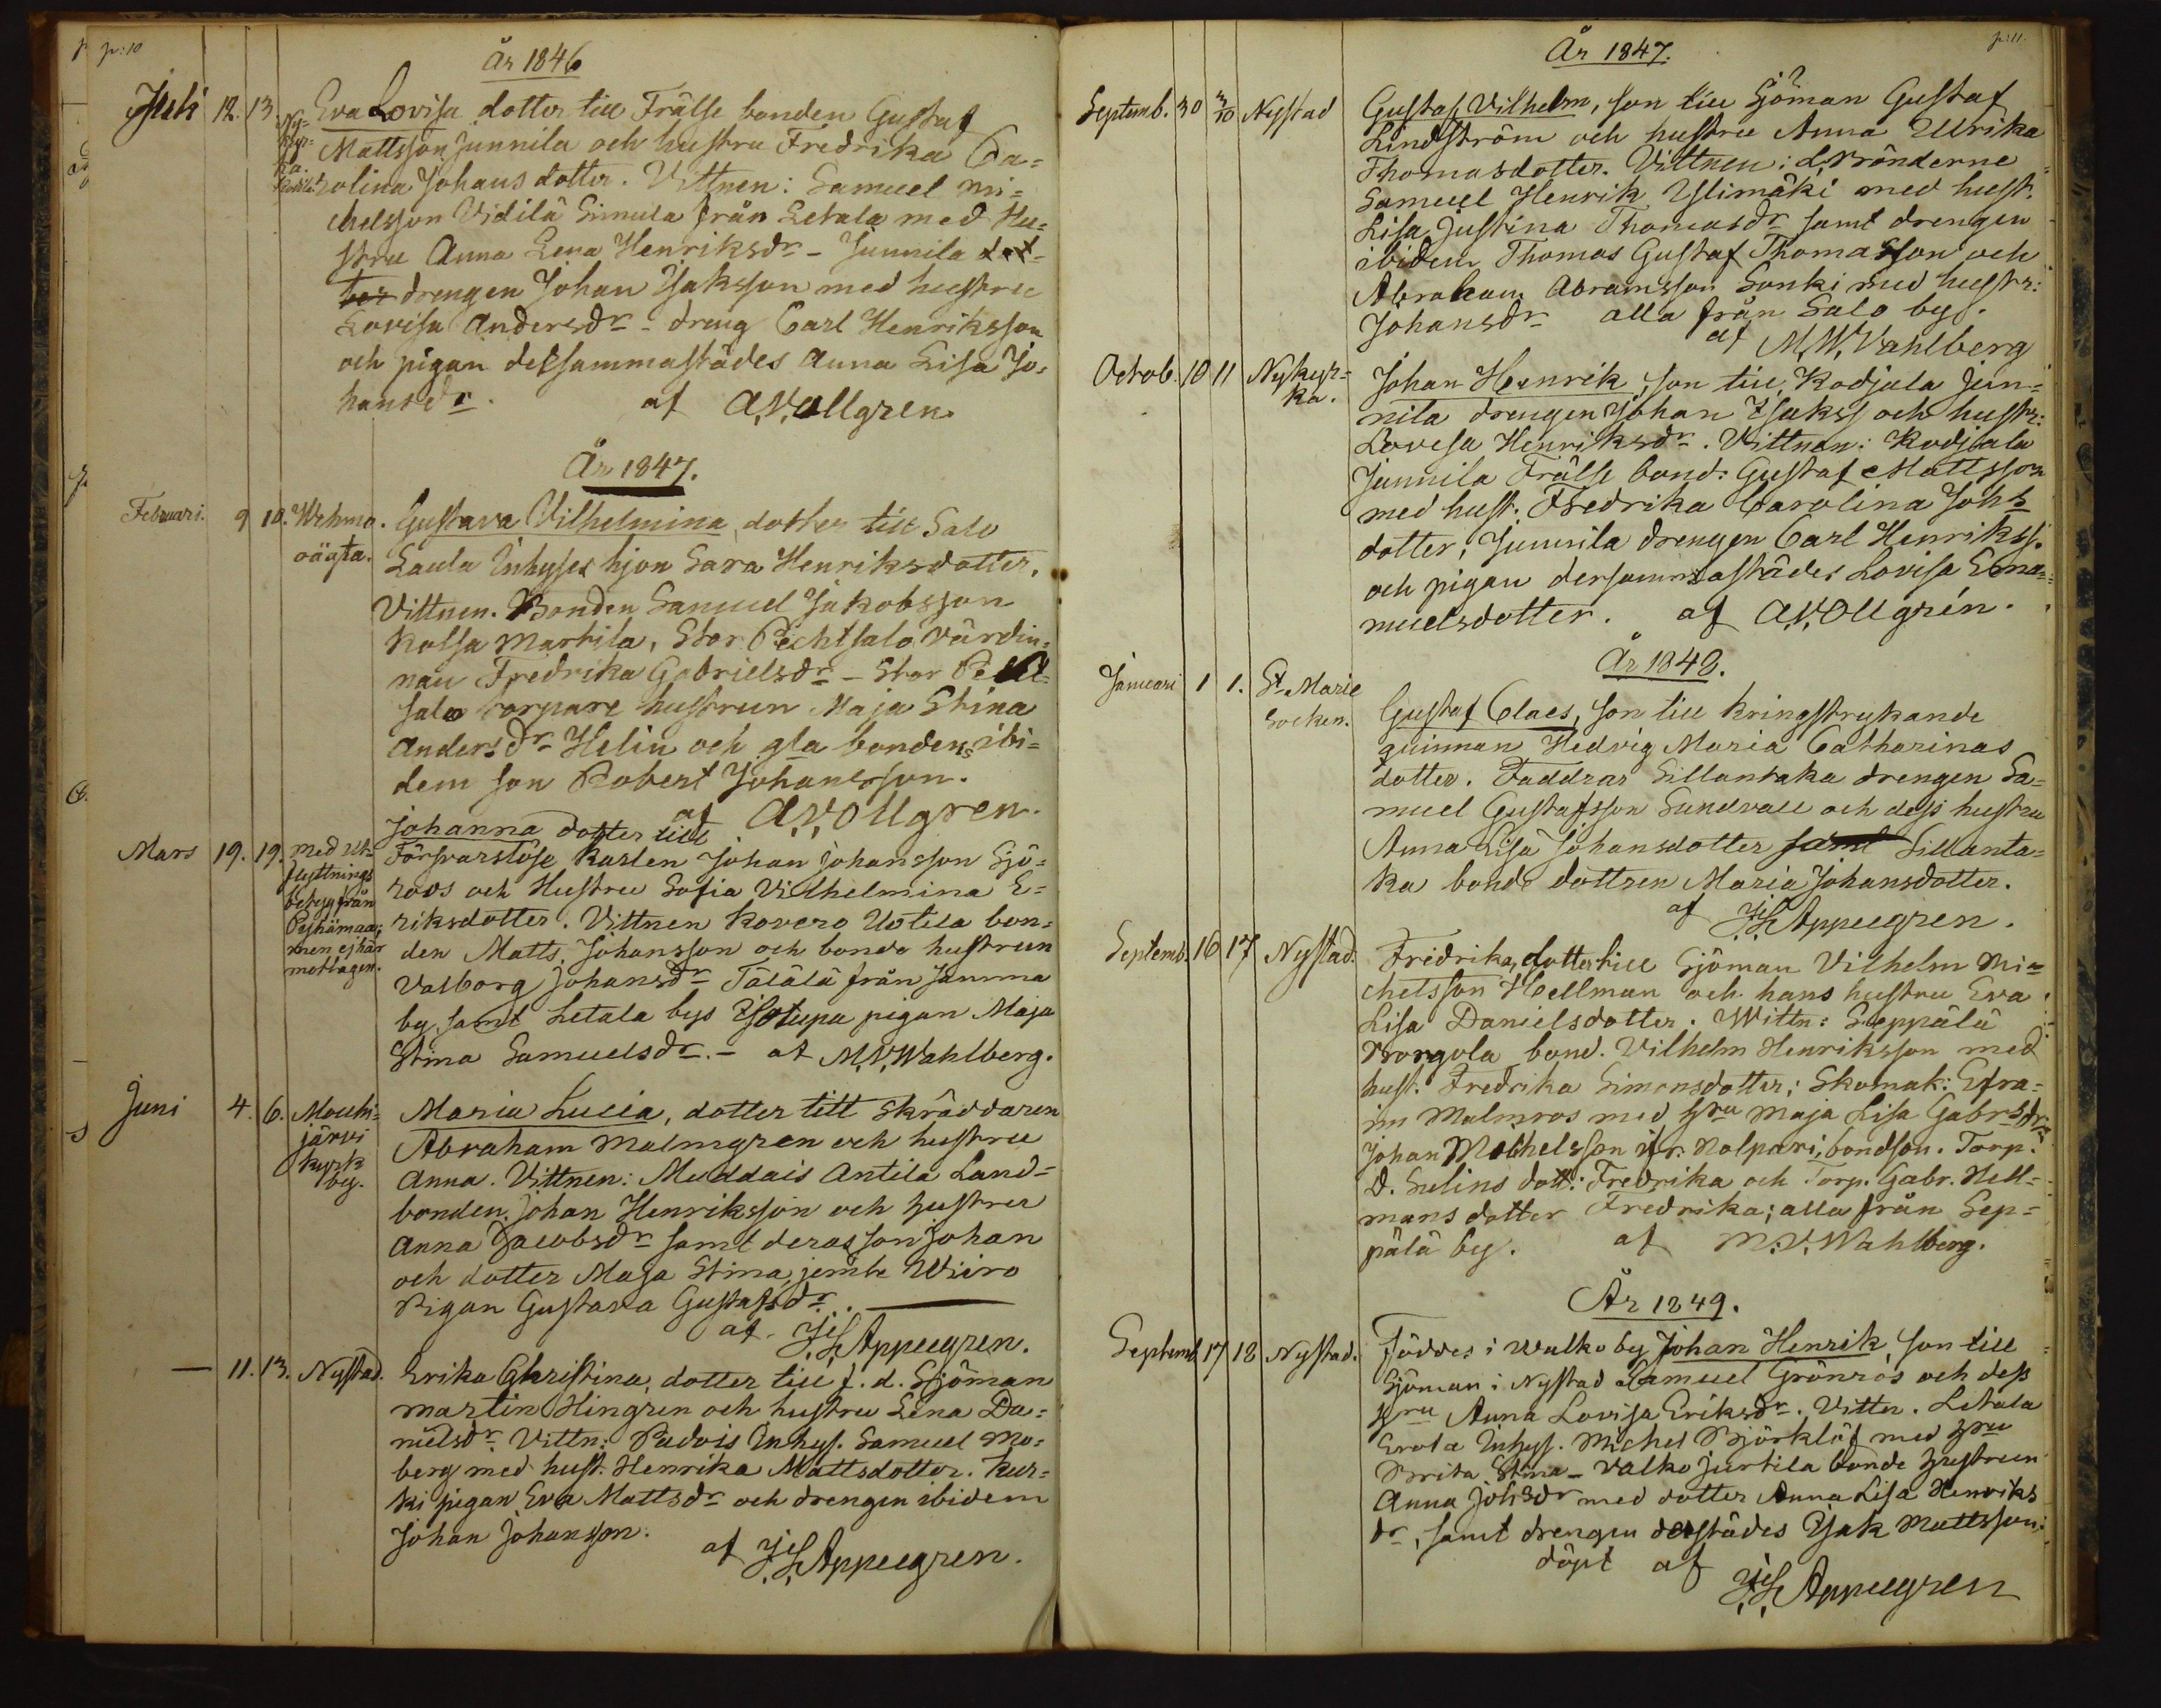 p: 10
År 1846
Juli 12. 13 Ny-
kyr-
ka.
Eva Lovisa dotter till Frälse bonden Gustaf
Mattsson Junnila och hustru Fredrika Ca=
rolina Johans dotter. Vittnen: Samuel Mi=
chelsson Vidilä Simula från Letala med Hu=
stru Anna Lena Henriksdr - Junnila dot-
ter drengen Johan Isaksson med hustru
Lovisa Andersdr - dreng Carl Henriksson
och pigan detsammastädes Anna Lisa Jo-
hansdr. af A.V. Ollgren.
År 1847.
Februari. 9 10. Wehmo.
Gustava Vilhelmina dotter till Salo
Laula Inhyses hjon Sara Henriksdotter.
Vittnen. Bonden Samuel Jakobsson
Kalsa Martila, Stor Pechtsalo värdin-
nan Fredrika Gabrielsdr - Stor Pecht=
salo torpare hustrun Maja Stina
Andersdr Helin och gla bondens ibi=
dem son Robert Johansson.
af A.V. Ollgren.
Mars 19. 19. med ut-
flyttnings
betyg från
Pyhämaa;
men ej här
mottagen.
Johanna dotter till
Försvarslöse karlen Johan Johansson Sjö=
roos och Hustru Sofia Vilhelmina E=
riksdotter. Vittnen Kovero Uotila bon=
den Matts Johansson och bonde hustrun
Valborg Johansdr Tälälä från samma
by, samt Letala bys Isotupa pigan Maja
Stina Samuelsdr. - af M.V. Wahlberg.
Juni 4. 6. Mouhi=
järvi
kyrk
by.
Maria Lucia, dotter till Skräddaren
Abraham Malmgren och hustru
Anna. Vittnen: Muddais Antila Land=
bonden Johan Henriksson och hustru
Anna Jacobsdr samt deras son Johan
och dotter Maja Stina, jemte Wiiro
Pigan Gustava Gustafsdr.
af J.L. Appelgren.
— 11. 13. Nystad.
Erika Christina, dotter till f. d. Sjöman
Martin Hingren och hustru Lena Da=
nielsdr. Vittn: Padvis Inhys. Samuel Mo=
berg med hust. Henrika Mattsdotter. Kur=
ki pigan Eva Mattsdr och drengen ibidem
Johan Johansson. af J.L. Appelgren.
p: 11.
År 1847.
Septemb. 30 3/10 Nystad
Gustaf Vilhelm, son till Sjöman Gustaf
Lindström och hustru Anna Ullrika
Thomasdotter. Vittnen: L. Bönderne
Samuel Henrik Ylimäki med hust.
Lisa Justina Thomasdr samt drengen
ibidem Thomas Gustaf Thomasson och
Abraham Abramsson Sonki med hustr:
Johansdr alla från Salo by.
af M.W. Vahlberg
Octob. 10 11 Nykyr=
ka.
Johan Henrik, son till Kodjala Jun=
nila drengen Johan Isakss och hustr:
Lovisa Henriksdr. Vittnen: Kodjala
Junnila Frälse bond: Gustaf Mattsson
med hust. Fredrika Carolina Johs
dotter, Junnila drengen Carl Henrikss.
och pigan dersammastädes Lovisa Ema=
nuelsdotter. af A.V. Ollgrén.
År 1848.
Januari 1 1. St. Marie
Socken.
Gustaf Claes, son till kringstrykande
quinnan Hedvig Maria Catharinas
dotter. Faddrar Sillantaka drengen Sa=
muel Gustafsson Sundvall och dess hustru
Anna Lisa Johansdotter samt Sillanta=
ka bonde dottren Maria Johansdotter.
af J.L. Appelgren.
Septemb. 16 17 Nystad.
Fredrika, dotter till Sjöman Vilhelm Mi=
chelsson Hellman och hans hustru Eva
Lisa Danielsdotter. Wittn: Seppälä
Borgola bond. Vilhelm Henriksson med
hust. Fredrika Simonsdotter; Skomak: Efra=
im Malmros med hru Maja Lisa Gabrsdr;
Johan Michelsson ifr. Kalpari, bondson. Torp.
D. Sulins dott: Fredrika och Torp. Gabr. Hell=
mans dotter Fredrika; alla från Sep=
pälä by. af M.V. Wahlberg.
År 1849.
Septemb 17 18 Nystad.
Föddes i Walko by Johan Henrik, son till
Sjöman i Nystad Samuel Grönrös och dess
hru Anna Lovisa Eriksdr. Vittn. Letala
Erola Inhys. Michel Björklöf med hru
Brita Stina - Valko Jurtila bonde hustrun
Anna Johsdr med dotter Anna Lisa Henriks
dr, samt drengen derstädes Isak Mattsson.
döpt af J.L. Appelgren